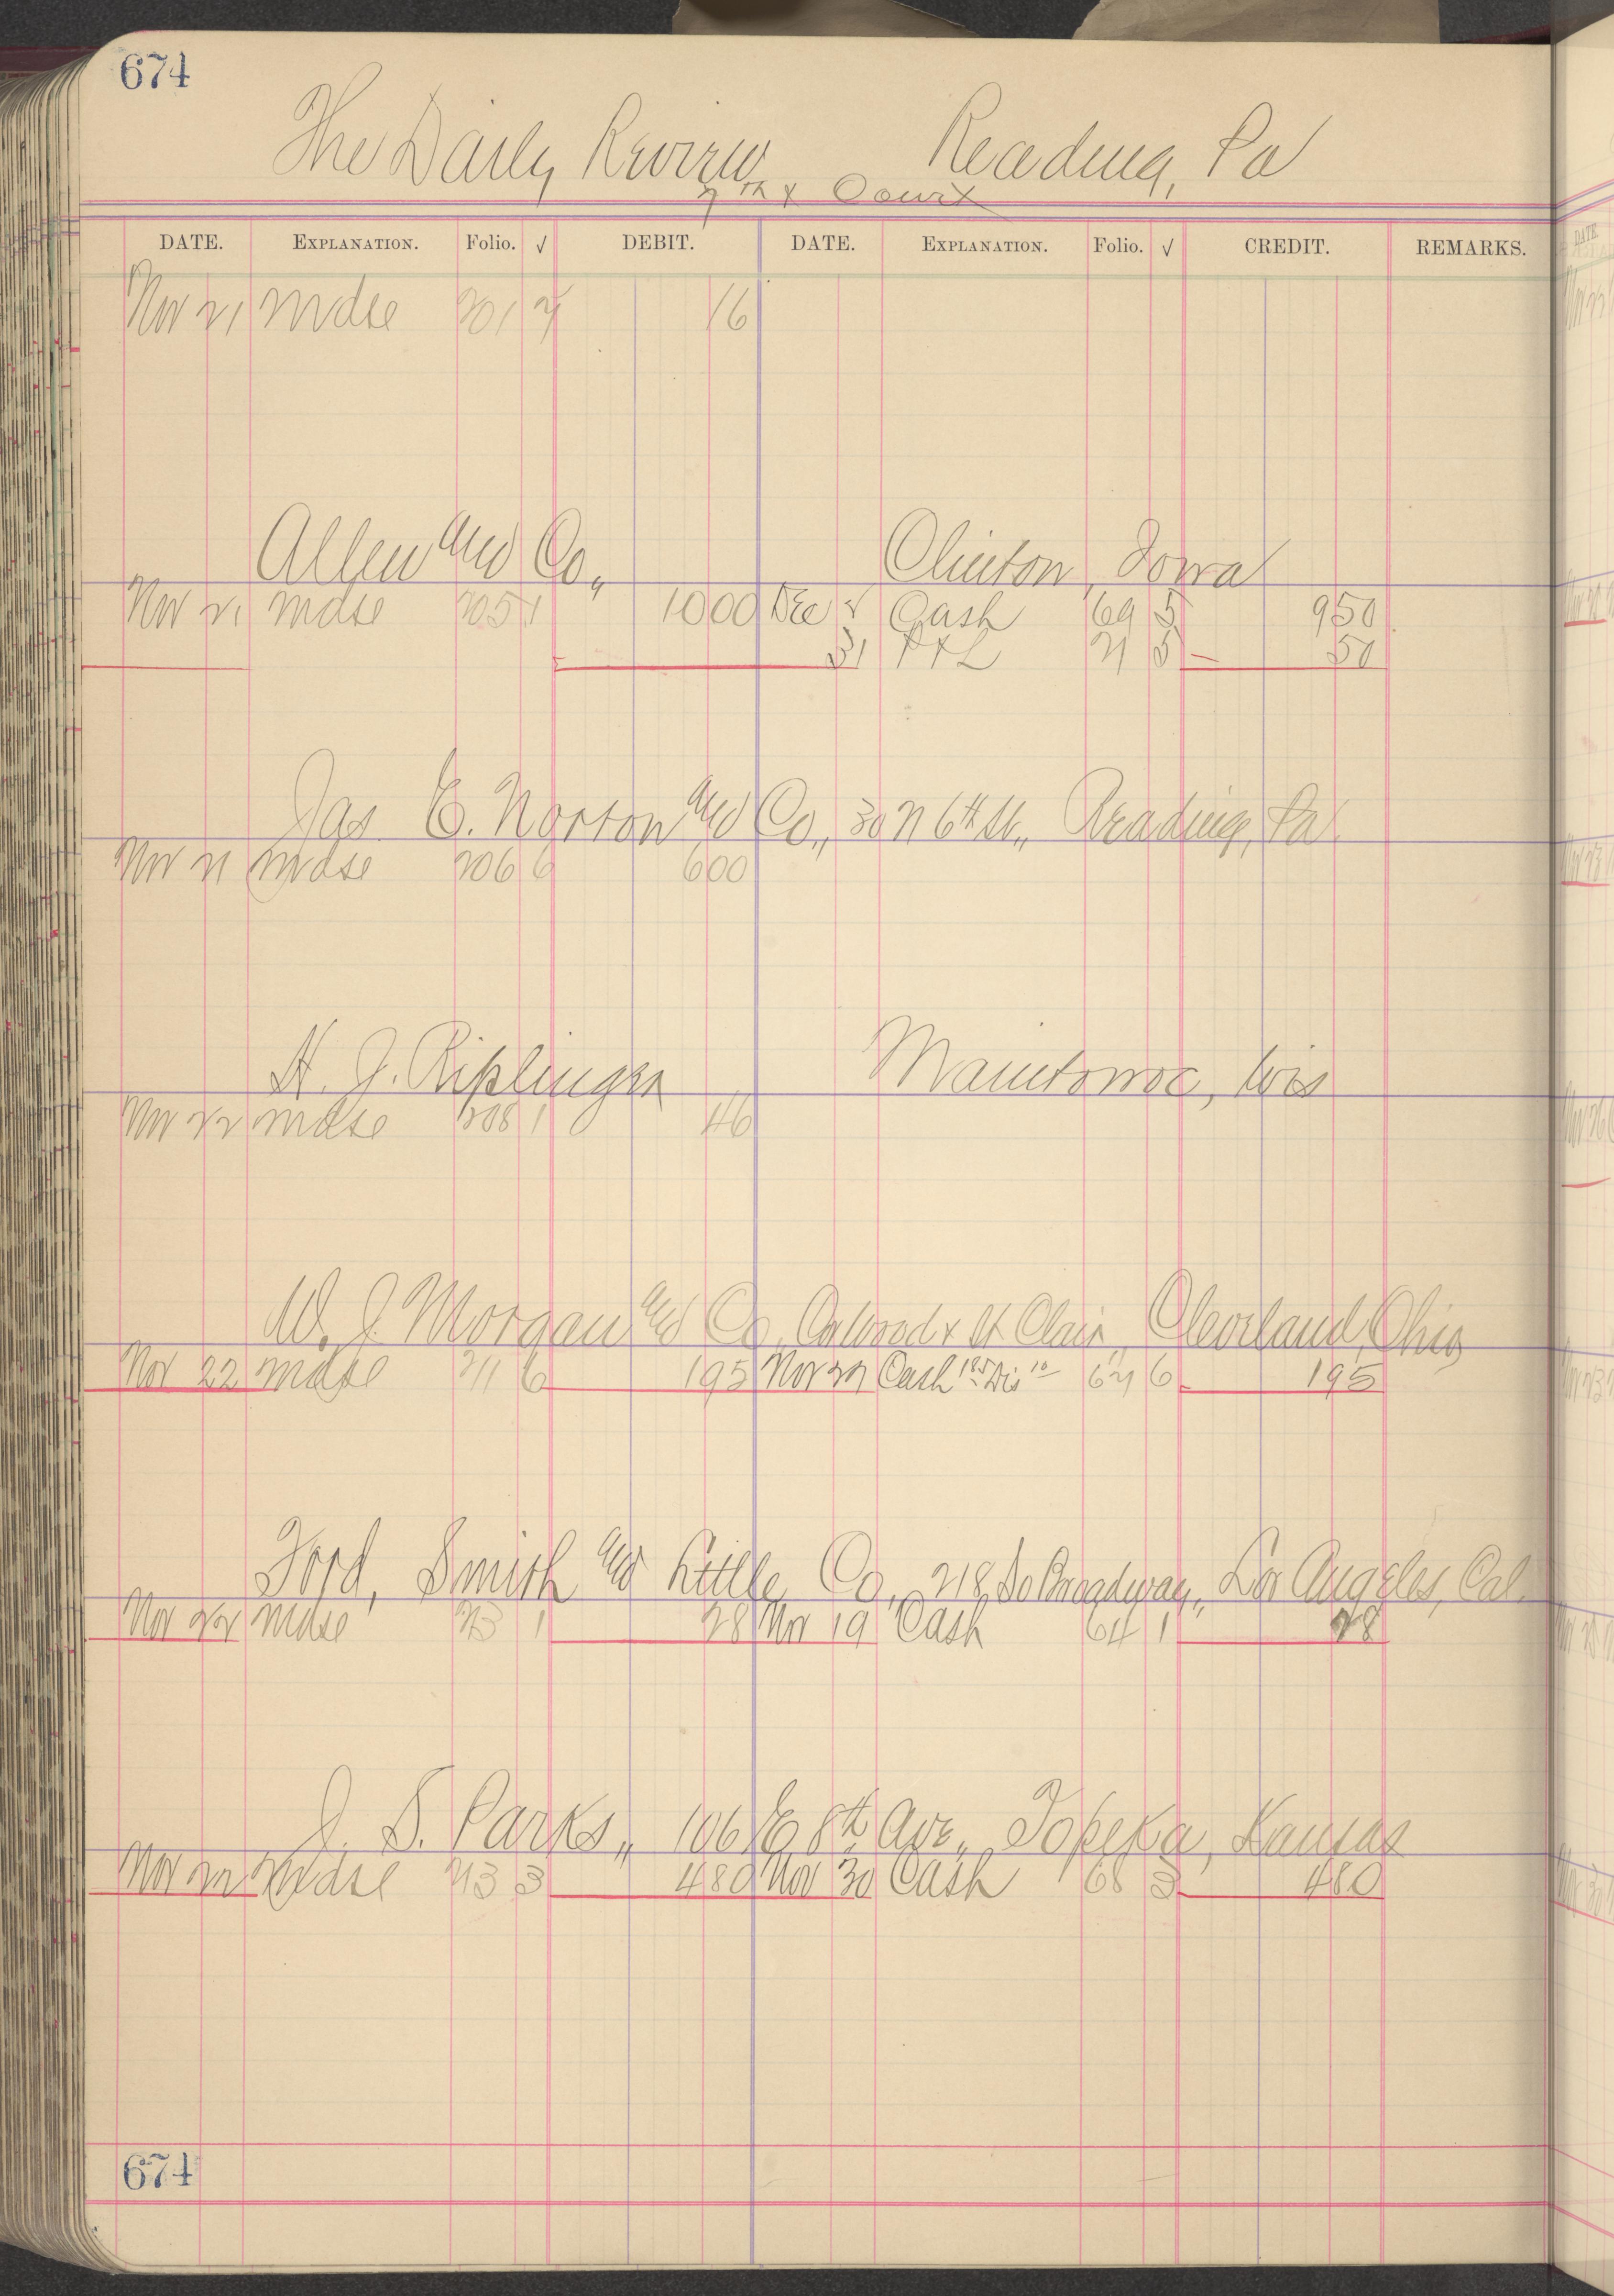 674
The Daily Review Reading, Pa
7th & Court
DATE. EXPLANATION. Folio. √ DEBIT. DATE. EXPLANATION. Folio. √ CREDIT. REMARKS.
Nov 21 Mdse 201 7 16
Allen and Co., Clinton, Iowa
Nov 21 Mdse 205 1 1000 Dec 2 Cash 69 5 950
31 P & L 21 5 50
Jas. E. Norton and Co., 30 N 6th St., Reading, Pa
Nov 21 Mdse 206 6 600
H. J. Riplinger Manitowoc, Wis
Nov 22 Mdse 208 1 46
W. J. Morgan and Co., & St Clair, Cleveland, Ohio
Nov 22 Mdse 211 6 195 Nov 27 Cash 185 Dis 10 67 6 195
Ford, Smith and Little Co., 218 So Broadway, Los Angeles, Cal.
Nov 22 Mdse 1 28 Nov 19 Cash 64 1 28
J. S. Parks, 106 E 8th Ave., Topeka, Kansas
Nov 22 Mdse 213 3 480 Nov 30 Cash 68 3 480
674